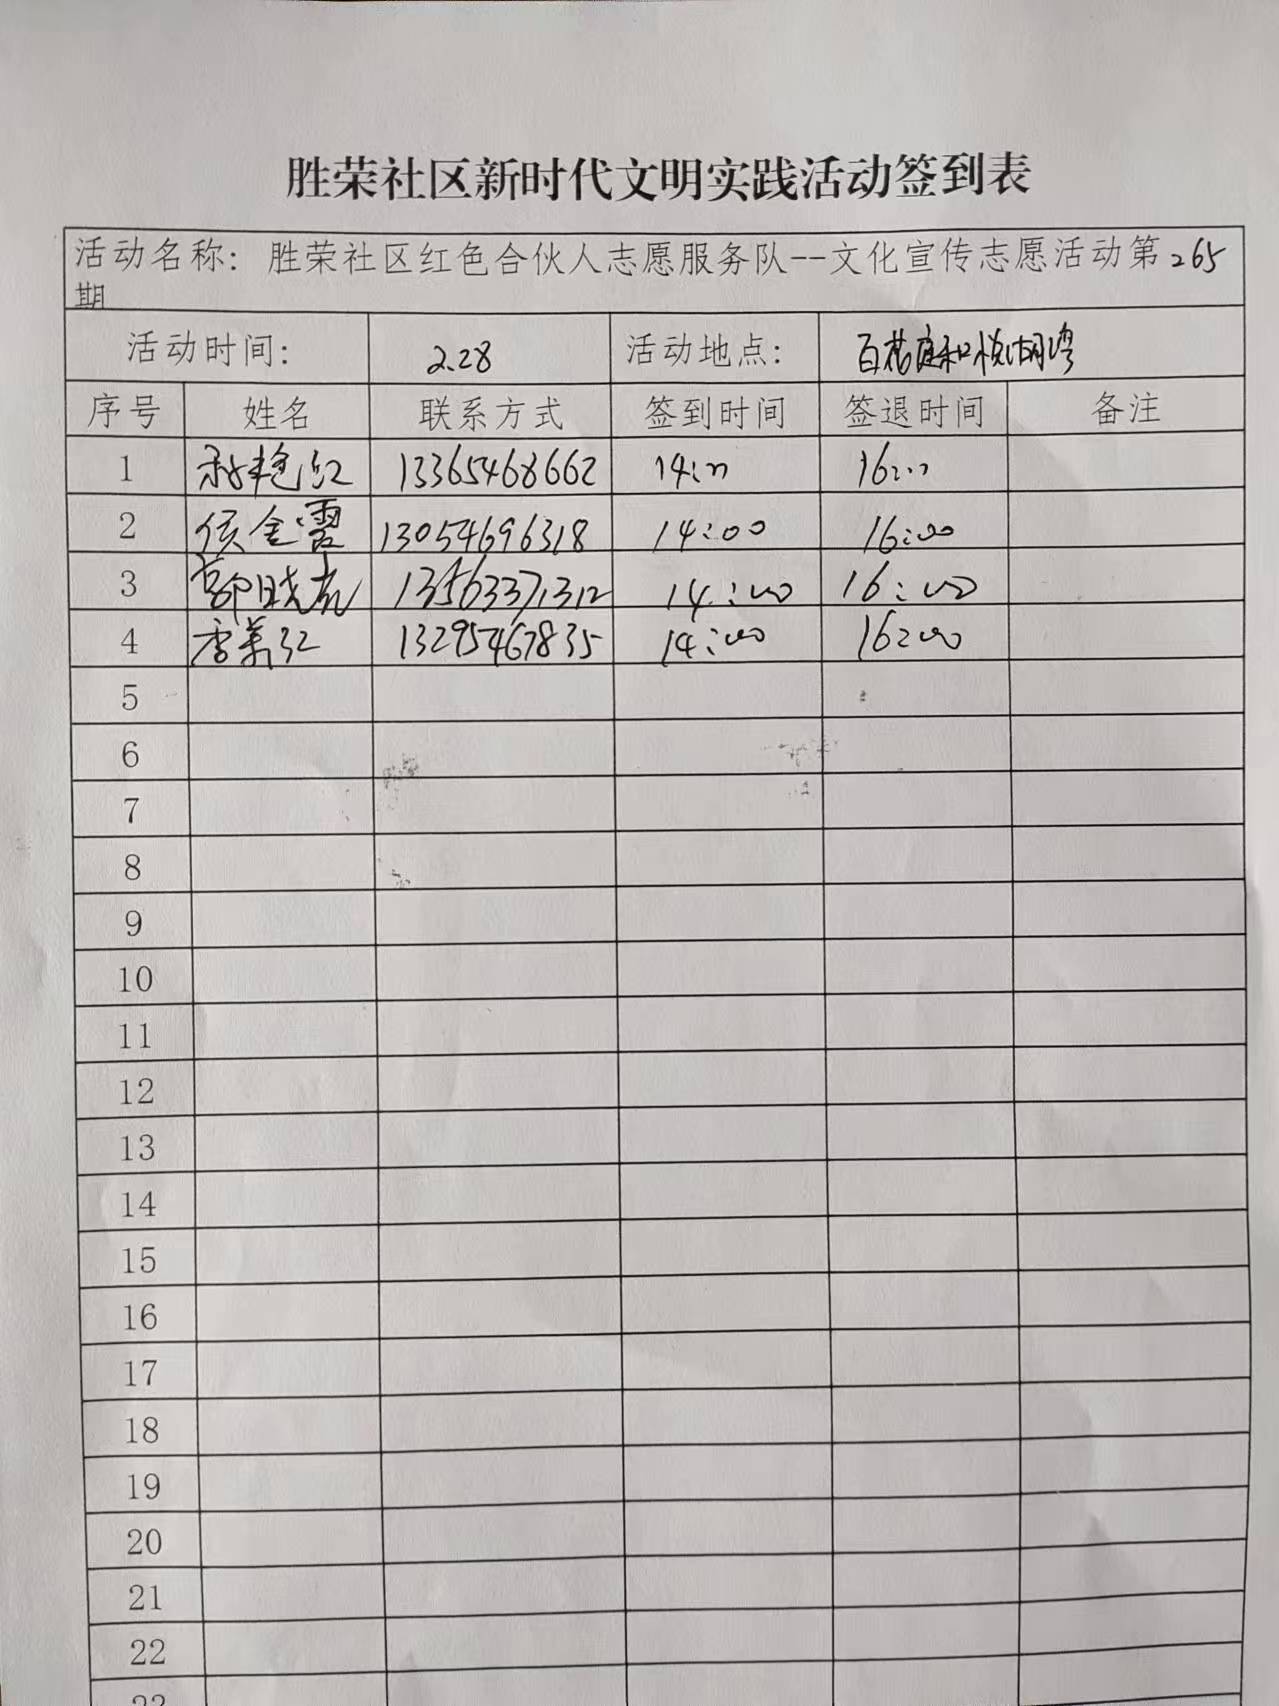 胜荣社区新时代文明实践活动签到表
活动名称：胜荣社区红色合伙人志愿服务队--文化宣传志愿活动第265
期
活动时间： 2.28 活动地点： 百花庭和悦湖湾
序号 姓名 联系方式 签到时间 签退时间 备注
1 艳红 13365468662 14:00 16:00
2 侯金霞 13054696318 14:00 16:00
3 郭晓 13563371312 14:00 16:00
4 李美红 13295467835 14:00 16:00
5
6
7
8
9
10
11
12
13
14
15
16
17
18
19
20
21
22
23